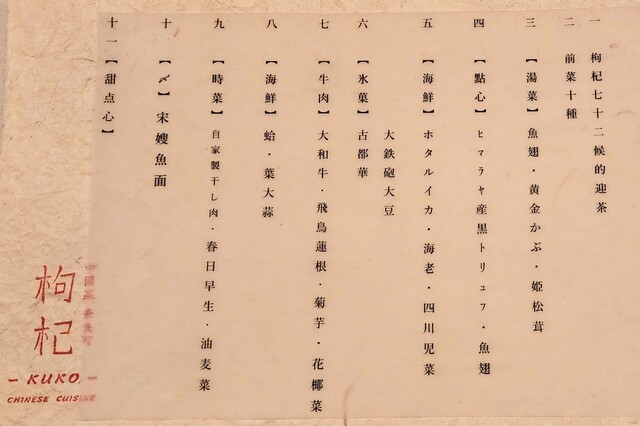 一 枸杞七十二候的迎茶
二 前菜十種
三【湯菜】魚翅・黄金かぶ・姫松茸
四【點心】ヒマラヤ産黒トリュフ・魚翅
五【海鮮】ホタルイカ・海老・四川児菜
大鉄砲大豆
六【氷菓】古都華
七【牛肉】大和牛・飛鳥蓮根・菊芋・花椰菜
八【海鮮】蛤・葉大蒜
九【時菜】自家製干し肉・春日早生・油麦菜
十【〆】宋嫂魚面
十一【甜点心】
枸杞
- KUKO -
CHINESE CUISINE